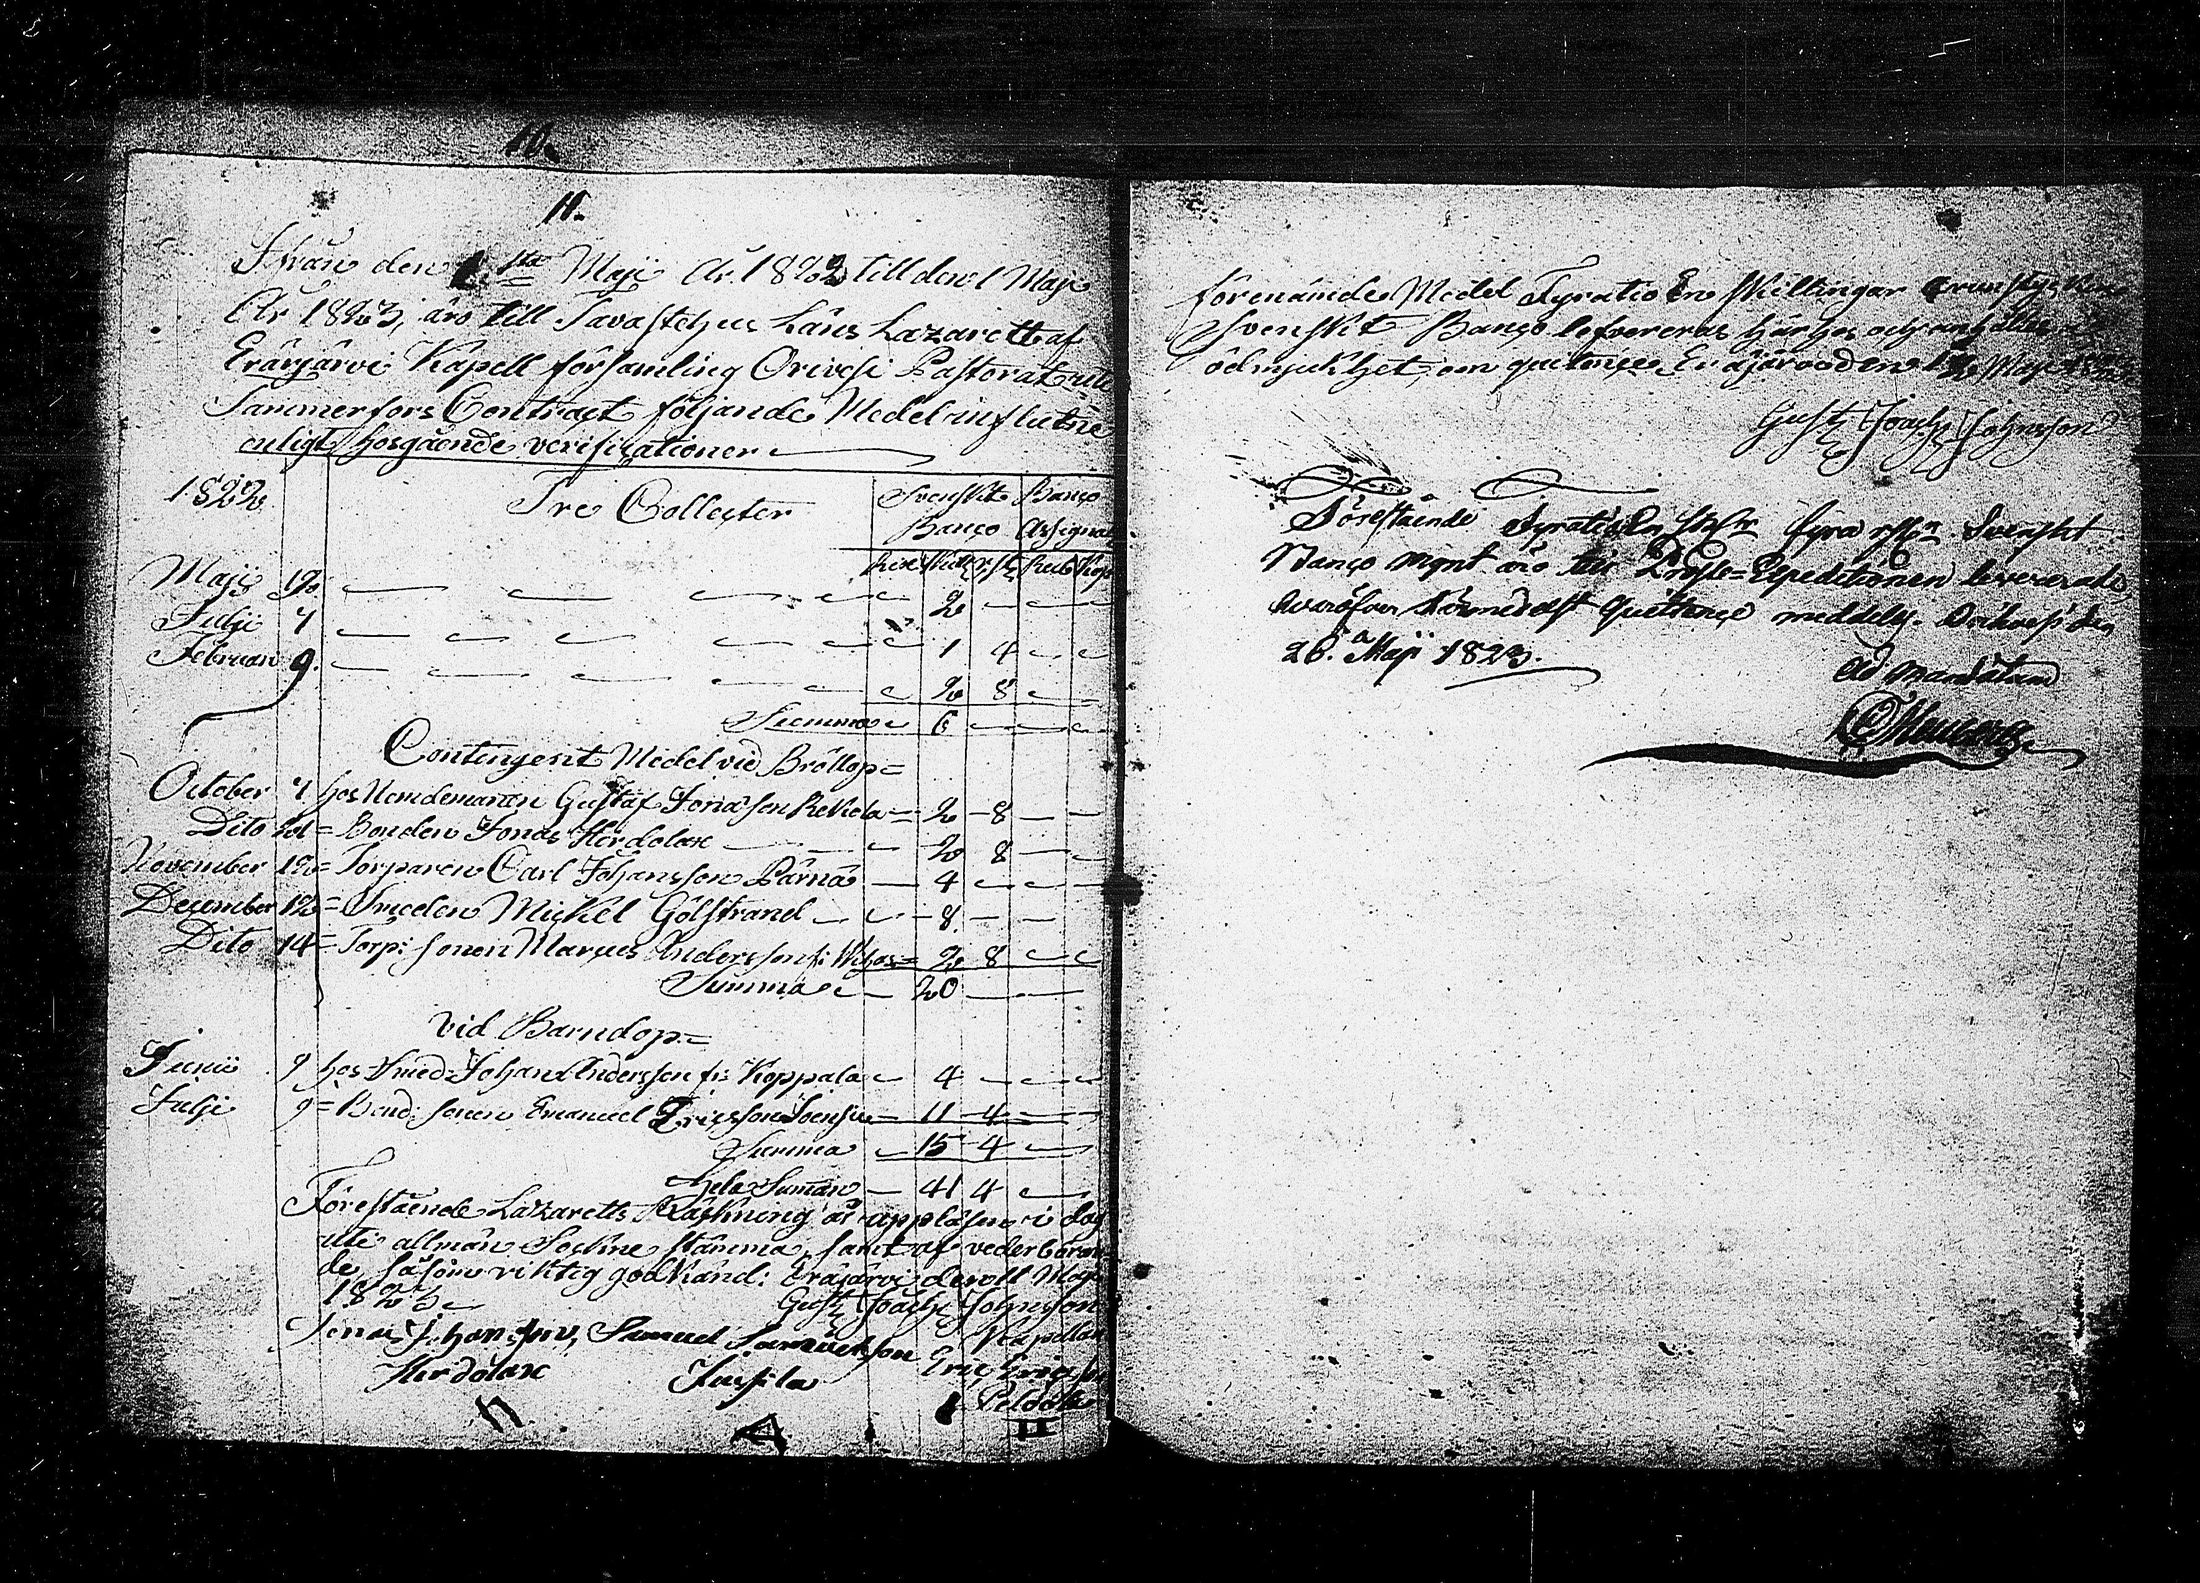 10.
11.
Ifrån den 1sta Maji År 1822 till den 1 Maji
År 1823, äro till Tavastehus Läns Lazarett af
Eräejärvi Kapell församling Orivesi Pastorat utu
Tammerfors Contract följande Medel influtne
enligt hosgående verificationer
1822 Tre Collecter Svenskt Banco Banco Assignat
Rd Skill rst Rub Kop
Maji 12 2
Julji 7 1 4
Februari 9. 2 8
Summa 6
Contingent Medel vid Bröllop=
October 7 hos Nemdemannen Gustaf Jonasson Rekola = 2 - 8
Dito = Bonden Jonas Herdolax 2 8
November 12 = Torparen Carl Johansson Pärnä 4
December 12 = Smeden Mickel Gölstrand 8
Dito 14 = Torp: sonen Marcus Andersson fr: = 2 8
Summa 20
Vid Barndop=
Junii 9 hos Smed: Johan Andersson fr: Koppala 4
Julji 9 = Bond: sonen Emanuel Ericsson = 11 4
Summa 15 4
Hela Suman 41 4
Förestående Lazaretts Räkning är uppläsen i dag
uti allmän Sockne stämma, samt af vederböran-
de såsom riktig godkänd: Eräjärvi den 11 Maji
1823 Gust: Joach: Johnsson
Jonas Johansson, Samuel Samuelsson Kapellan
Herdolax Eric Ericsson
förenämde Medel Fyratio En Skillingar
Svenskt Banco lefvereras härhos och anhålles i
ödmjukhet, om quitence Eräjärvi den Maji
Gust: Joach: Johnsson
Förestående Fyratio En sk: fyra rst: Svenskt
Banco mynt äro till Prosts-Expeditionen levererade,
hvaröfver härmedelst quittence meddeles. Orihvesi den
26. Maji 1823.
Ad mandatum